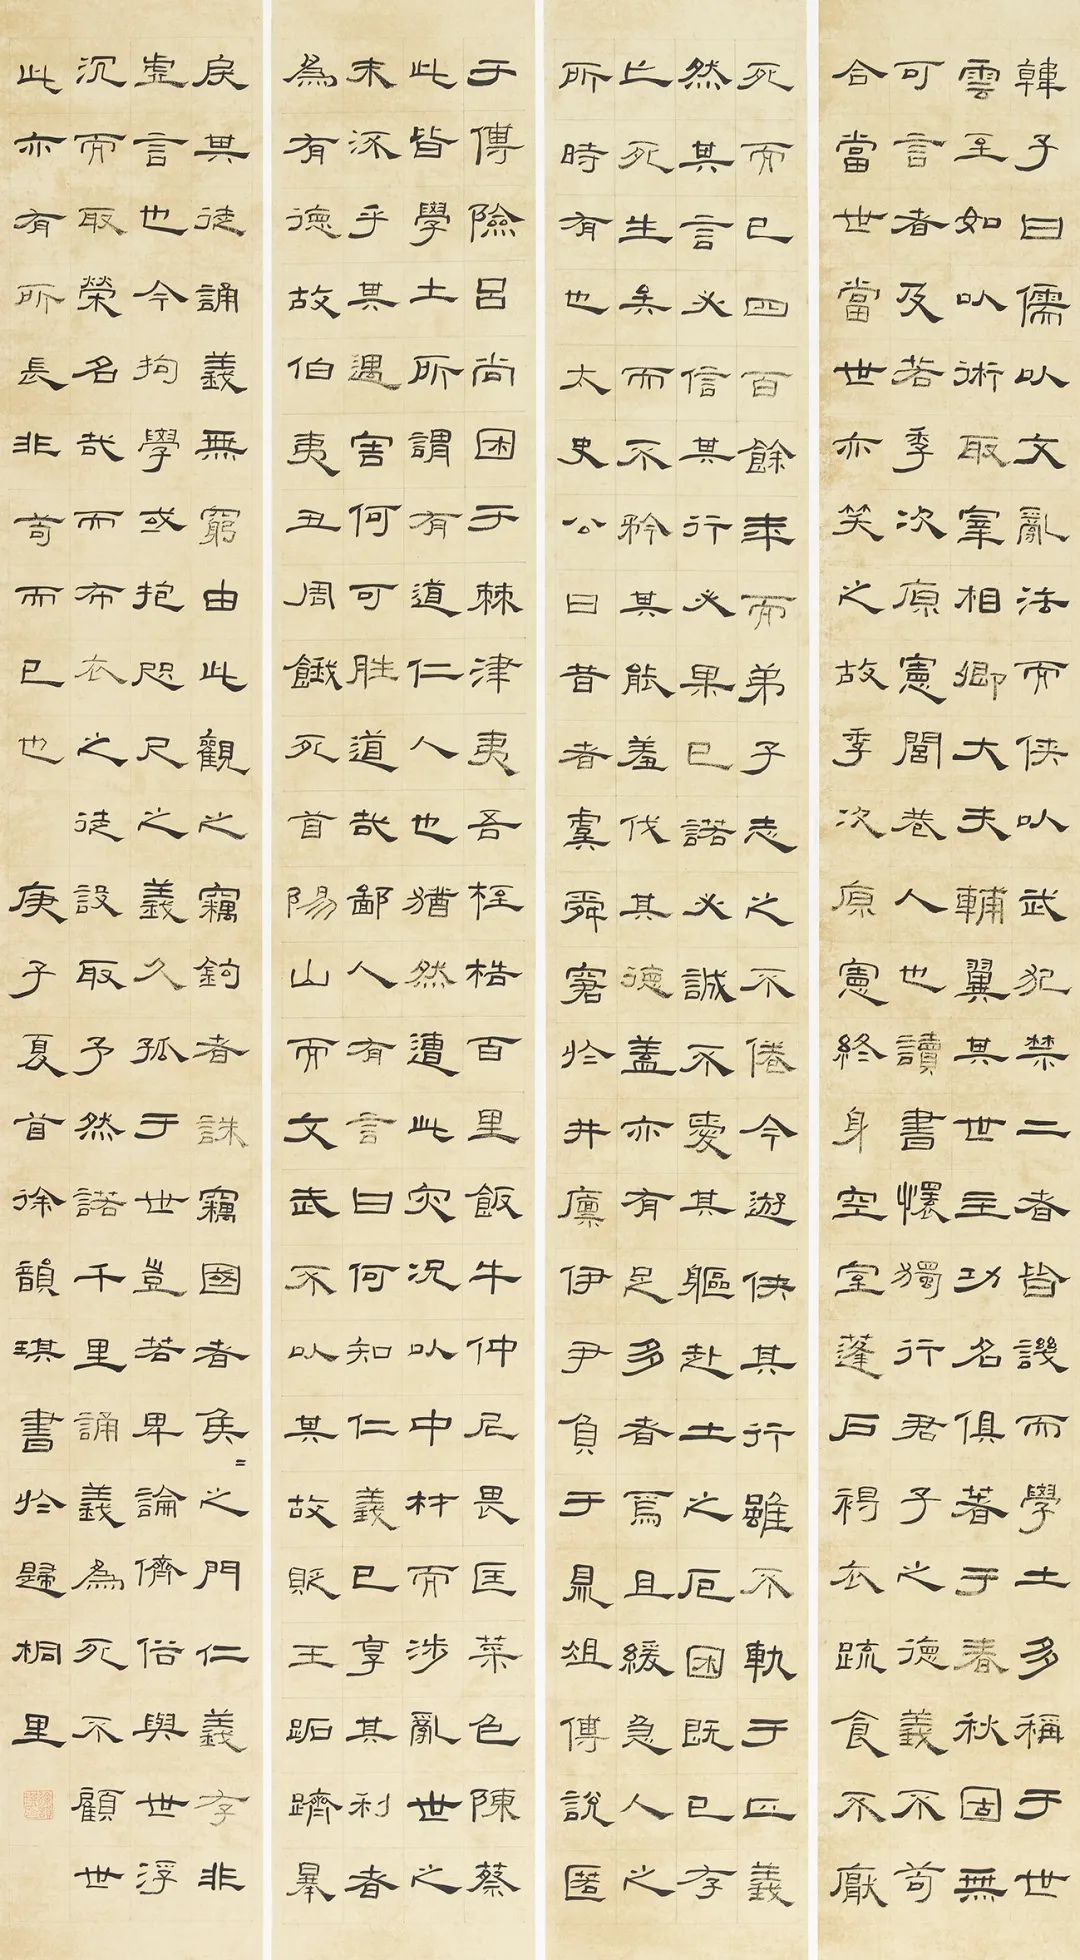 韓子曰儒以文亂法而俠以武犯禁二者皆譏而學士多稱于世
雲至如以術取宰相卿大夫輔翼其世主功名俱著于春秋固無
可言者及若季次原憲閭巷人也讀書懷獨行君子之德義不苟
合當世當世亦笑之故季次原憲終身空室蓬戶褐衣疏食不厭
死而已四百餘年而弟子志之不倦今遊俠其行雖不軌于正義
然其言必信其行必果已諾必誠不愛其軀赴士之厄困既已存
亡死生矣而不矜其能羞伐其德蓋亦有足多者焉且緩急人之
所時有也太史公曰昔者虞舜窘於井廩伊尹負于鼎俎傅說匿
于傅險呂尚困于棘津夷吾桎梏百里飯牛仲尼畏匡菜色陳蔡
此皆學士所謂有道仁人也猶然遭此災況以中材而涉亂世之
末流乎其遇害何可胜道哉鄙人有言曰何知仁義已享其利者
為有德故伯夷丑周餓死首陽山而文武不以其故貶王跖躋暴
戾其徒誦義無窮由此觀之竊鉤者誅竊國者矦=之門仁義存非
虛言也今拘學或抱咫尺之義久孤于世豈若卑論儕俗與世浮
沉而取榮名哉而布衣之徒設取予然諾千里誦義為死不顧世
此亦有所長非苟而已也 庚子夏首徐韻琪書於歸桐里